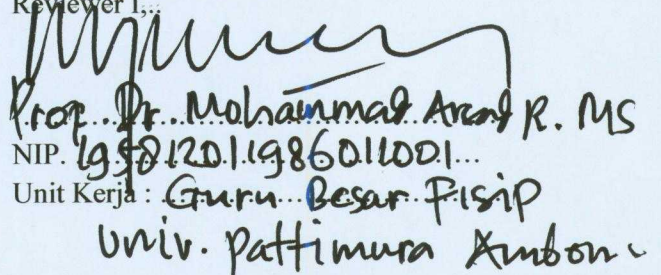 Reviewer I,..
Prof. Dr. Mohammad Arsad R. MS
NIP. 195812011986011001...
Unit Kerja : Guru Besar Fisip
Univ. Pattimura Ambon